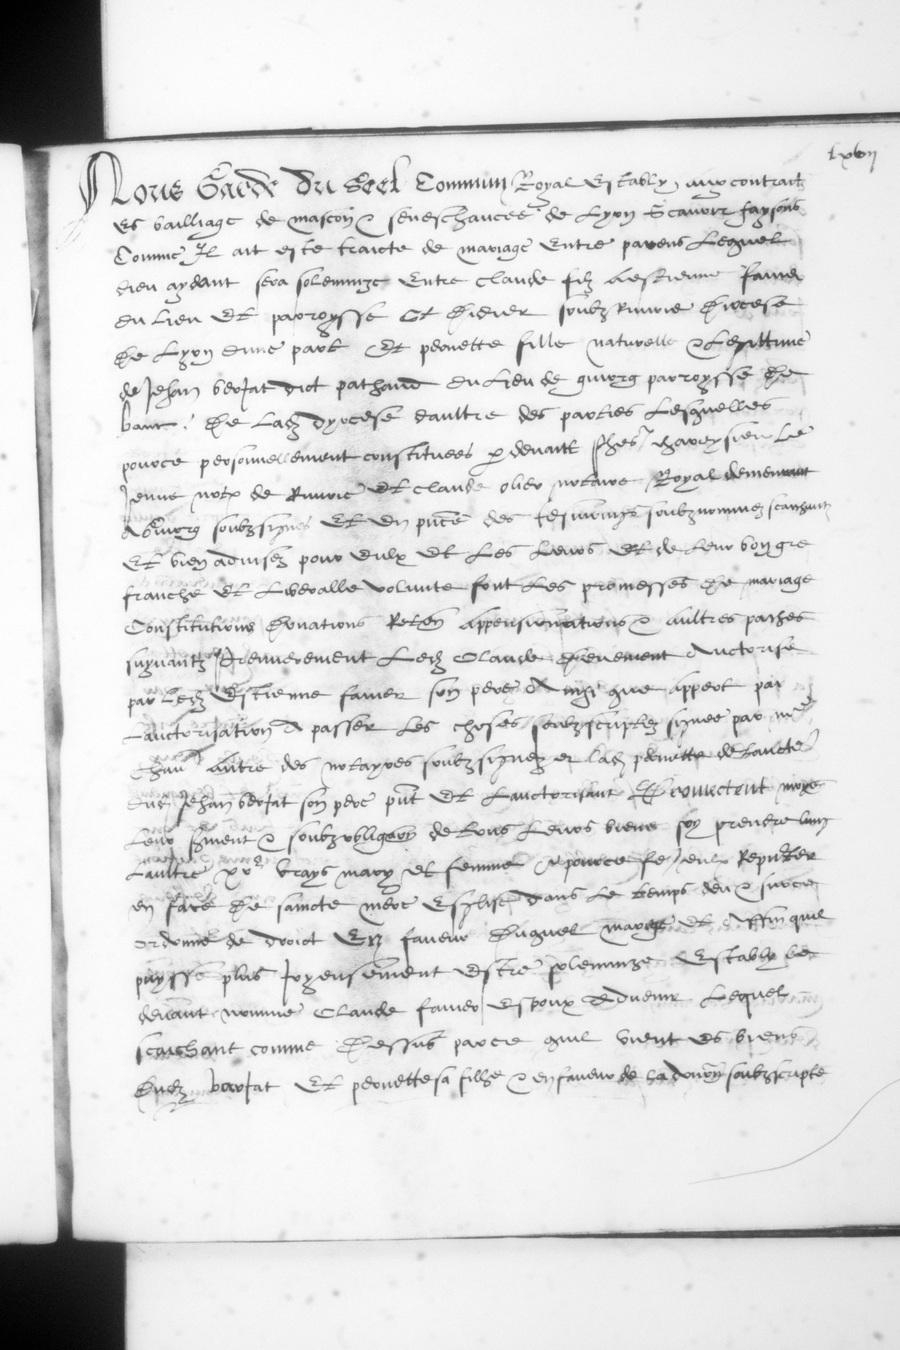 lxvii
Nous Garde du Seel Commun Royal estably aux contraictz
es bailliage de mascon & seneschaucee de Lyon Scavoir faysons
Comme Il ait este traicte de mariage Entre parens Lequel
dieu aydant sera solempnize Entre Claude filz a estienne faure
du Lieu Et parroysse St didier soubz Riverie diocese
de Lyon dune part Et pernette fille naturelle & Legittime
de Jehan berjat dict pathaud du Lieu de parroysse de
de Lad dyocese daultre des parties Lesquelles
pource personnellement constituees p devant Le
Jeune nore de Riverie Et Claude notaire Royal demeurant
soubzsignes Et en pnce des tesmoings soubznommez scaichantz
Et bien advisez pour eulx Et Les Leurs Et de Leur bon gre
franche Et Liberalle volunte font Les promesses de mariage
Constitutions donations & aultres paches
suyvantz Premierement Led Claude auctorise
par Led Estienne faure son pere Ainsi que appert par
Lauctorisation A passer Les choses soubzscriptes signee par me
aultre des notayres soubzsignez et Lad pernette de Lauctte
dud Jehan berjat son pere pnt Et Lauctorisant Promectent moye
Leur sment & soubz obligaon de tous Leurs biens soy prendre Lung
Laultre vrays mary Et femme
en face de saincte mere Esglise dans Le temps deu & sur ce
ordonne de droict En faveur duquel mariage Et Affin quil
puysse plus Joyeusement Estre solempnize Estably
devant nomme Claude faure Espoux Advenir Lequel
scaichant comme dessus parce quil vient es biens
dud berjat Et pernette sa fille & en faveur de La donaon soubzscripte